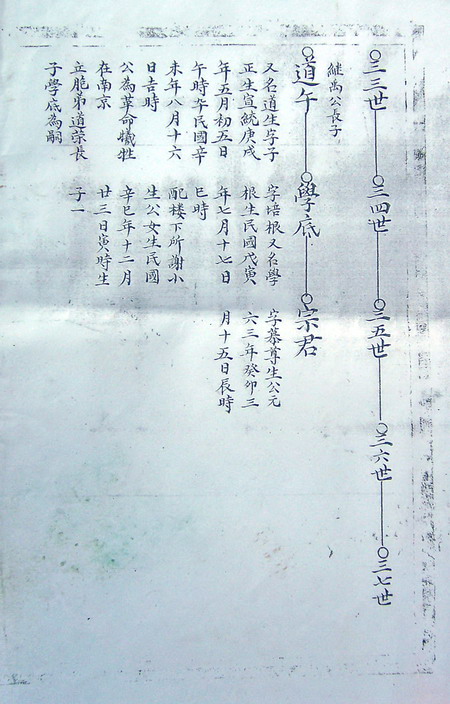 三三世
三四世
三五世
三六世
三七世
繼禹公長子
道午
學底
宗君
又名道生字子
正生宣統庚戌
年五月初五日
午時卒民國辛
未年八月十六
日吉時
公為革命犧牲
在南京
立胞弟道榮長
子學底為嗣
字培根又名學
根生民國戊寅
年七月十七日
巳時
配楼下所謝小
生公女生民國
辛巳年十二月
廿三日寅時生
子一
字慕尊生公元
六三年癸卯三
月十五日辰時